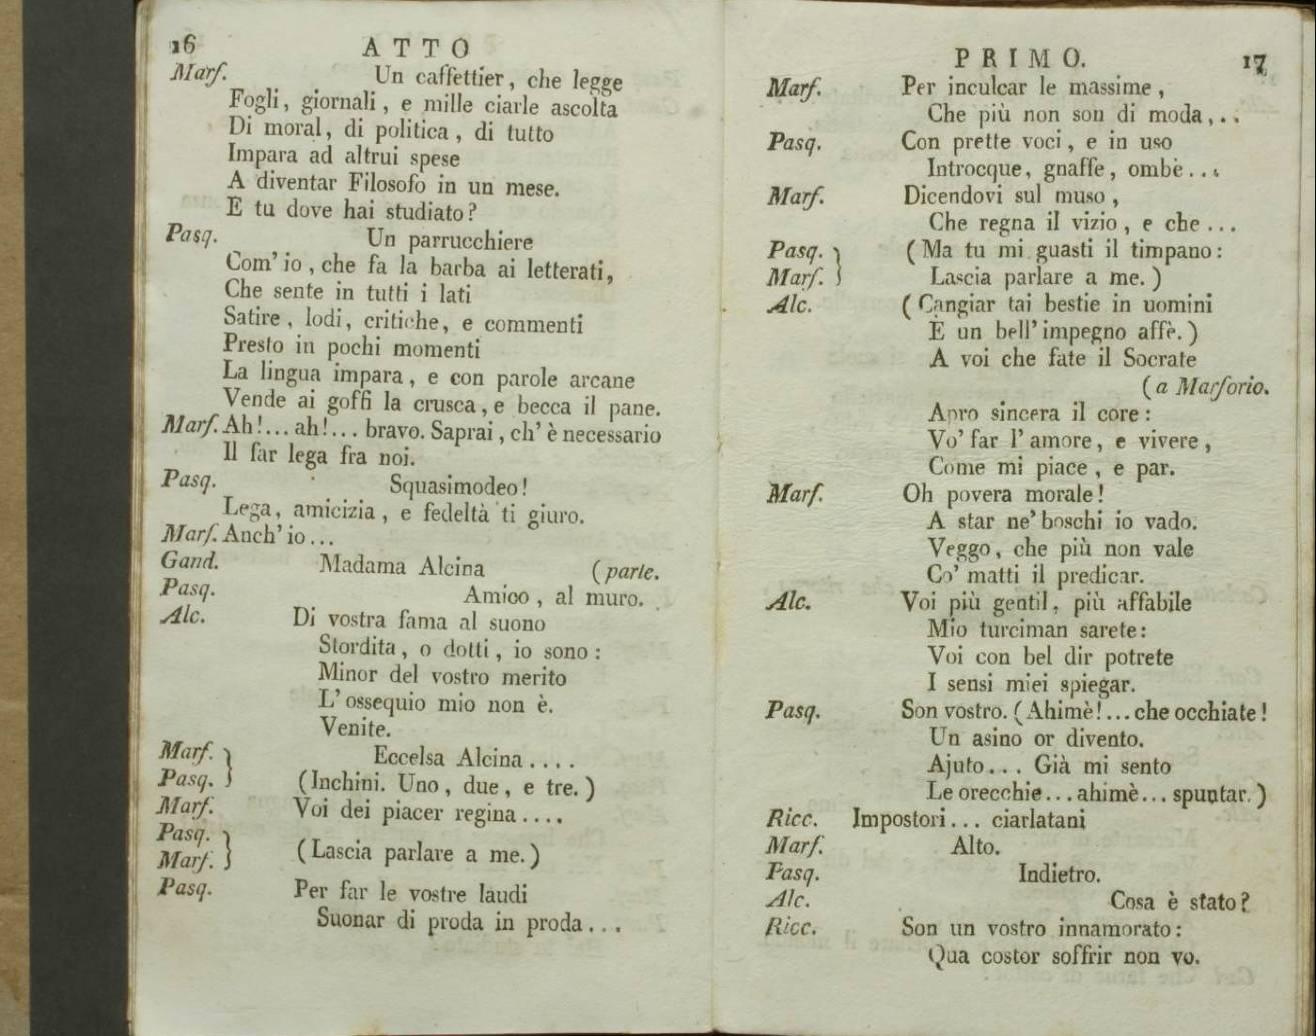 16 ATTO
Marf. . . Un caffettier, che legge
Fogli, giornali, e mille ciarle ascolta
Di moral, di politica, di tutto
Impara ad altrui spese
A diventar Filosofo in un mese.
E tu dove hai studiato?
Pasq. Un parrucchiere
Com' io, che fa la barba ai letterati,
Che sente in tutti i lati
Satire, lodi, critiche, e commenti
Presto in pochi momenti
La lingua impara, e con parole arcane
Vende ai goffi la crusca, e becca il pane.
Marf. Ah!... ah!... bravo. Saprai, ch' è necessario
Il far lega fra noi.
Pasq. Squasimodeo!
Lega, amicizia, e fedeltà ti giuro.
Marf. Anch' io...
Gand. Madama Alcina (parte.
Pasq. Amico, al muro.
Alc. Di vostra fama al suono
Stordita, o dotti, io sono:
Minor del vostro merito
L' ossequio mio non è.
Venite.
Marf. } Eccelsa Alcina....
Pasq. } (Inchini. Uno, due, e tre.)
Marf. Voi dei piacer regina....
Pasq. }
Marf. } (Lascia parlare a me.)
Pasq. Per far le vostre laudi
Suonar di proda in proda...
PRIMO. 17
Marf. Per inculcar le massime,
Che più non son di moda,..
Pasq. Con prette voci, e in uso
Introcque, gnaffe, ombè...
Marf. Dicendovi sul muso,
Che regna il vizio, e che...
Pasq. } (Ma tu mi guasti il timpano:
Marf. } Lascia parlare a me.)
Alc. (Cangiar tai bestie in uomini
E un bell' impegno affè.)
A voi che fate il Socrate
(a Marforio.
Apro sincera il core:
Vo' far l' amore, e vivere,
Come mi piace, e par.
Marf. Oh povera morale!
A star ne' boschi io vado.
Veggo, che più non vale
Co' matti il predicar.
Alc. Voi più gentil, più affabile
Mio turciman sarete:
Voi con bel dir potrete
I sensi miei spiegar.
Pasq. Son vostro. (Ahimè!... che occhiate!
Un asino or divento.
Ajuto... Già mi sento
Le orecchie... ahimè... spuntar.)
Ricc. Impostori... ciarlatani
Marf. Alto.
Pasq. Indietro.
Alc. Cosa è stato?
Ricc. Son un vostro innamorato:
Qua costor soffrir non vo.